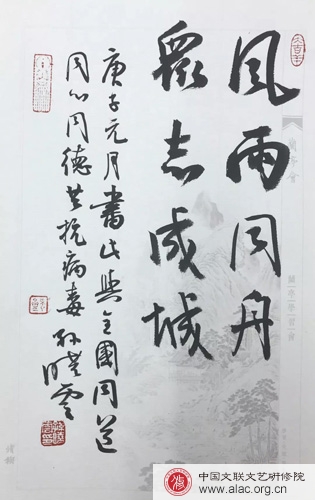 風雨同舟
眾志成城
庚子元月書此與全國同道
同心同德共抗病毒 孫曉雲
大吉羊
中国文联文艺研修院
www.alac.org.cn